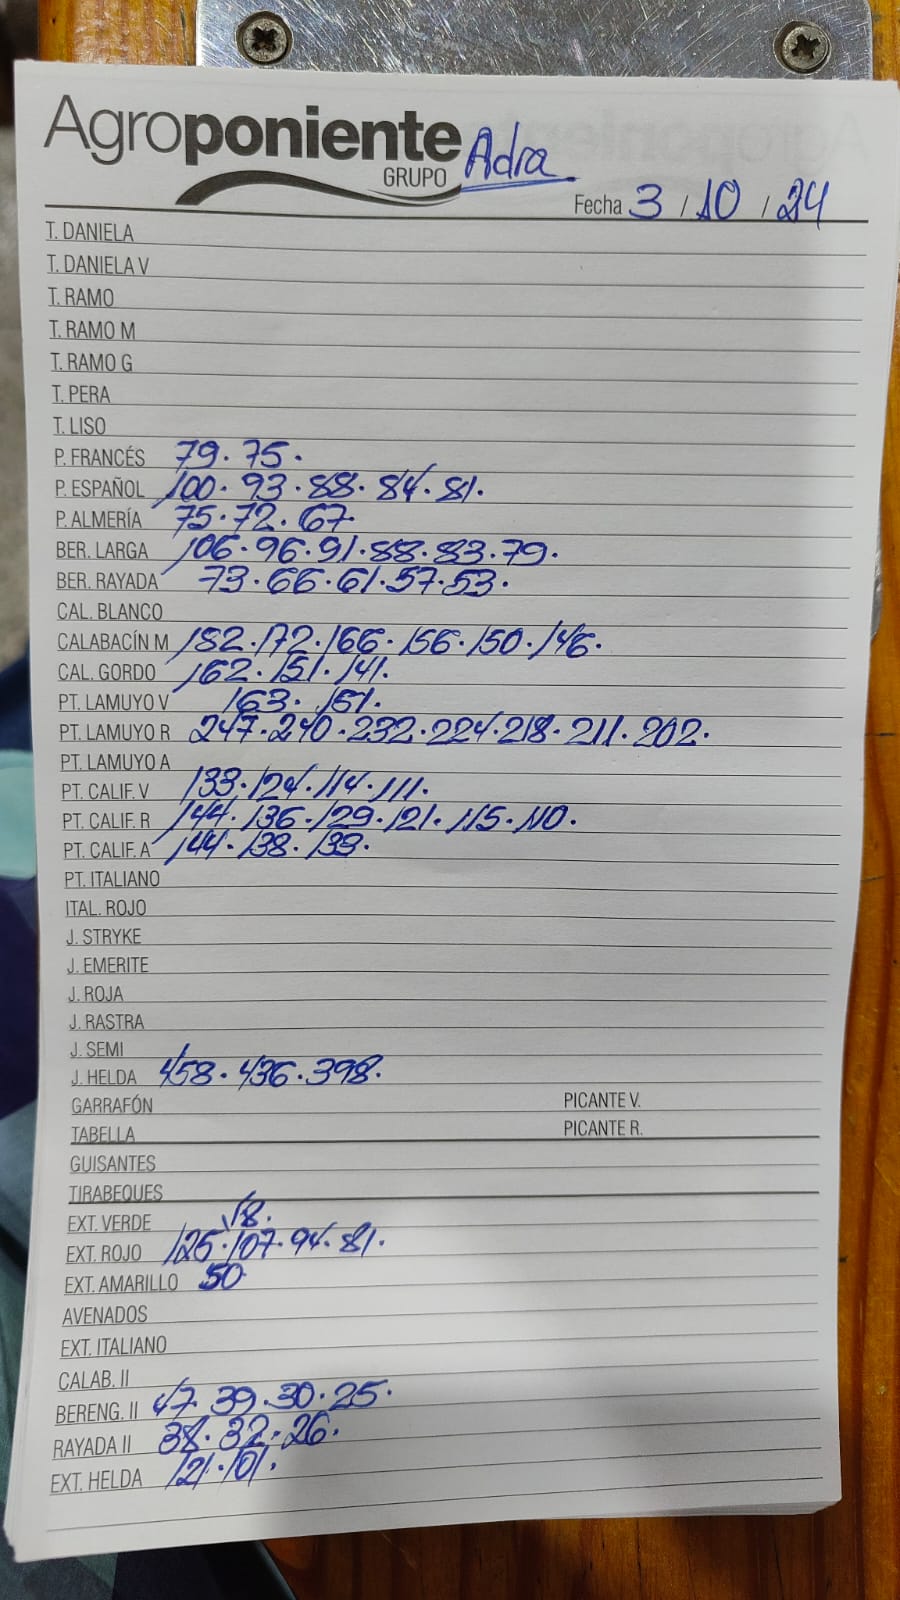 Agroponiente
GRUPO
Adra
Fecha 3 / 10 / 24
T. DANIELA
T. DANIELA V
T. RAMO
T. RAMO M
T. RAMO G
T. PERA
T. LISO
P. FRANCÉS 79. 75.
P. ESPAÑOL 100. 93. 88. 84. 81.
P. ALMERÍA 75. 72. 67.
BER. LARGA 106. 96. 91. 88. 83. 79.
BER. RAYADA 73. 66. 61. 57. 53.
CAL. BLANCO
CALABACÍN M 182. 172. 166. 156. 150. 146.
CAL. GORDO 162. 151. 141.
PT. LAMUYO V 163. 151.
PT. LAMUYO R 247. 240. 232. 224. 218. 211. 202.
PT. LAMUYO A
PT. CALIF. V 133. 124. 114. 111.
PT. CALIF. R 144. 136. 129. 121. 115. 110.
PT. CALIF. A 144. 138. 133.
PT. ITALIANO
ITAL. ROJO
J. STRYKE
J. EMERITE
J. ROJA
J. RASTRA
J. SEMI
J. HELDA 458. 436. 398.
GARRAFÓN PICANTE V.
TABELLA PICANTE R.
GUISANTES
TIRABEQUES
EXT. VERDE
EXT. ROJO 125. 107. 94. 81.
EXT. AMARILLO 50
AVENADOS
EXT. ITALIANO
CALAB. II
BERENG. II 47. 39. 30. 25.
RAYADA II 38. 32. 26.
EXT. HELDA 121. 101.